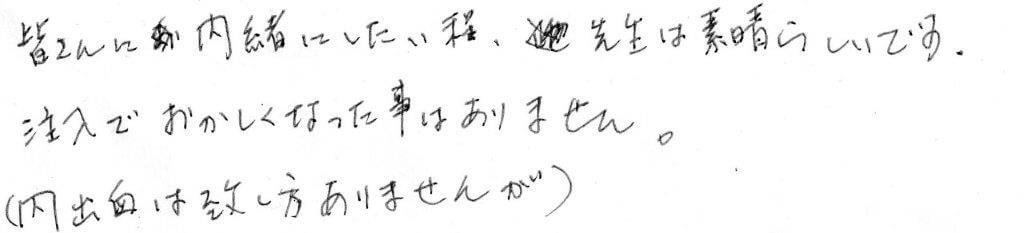 皆さんに内緒にしたい程、先生は素晴らしいです.
注入でおかしくなった事はありません。
(内出血は致し方ありませんが)